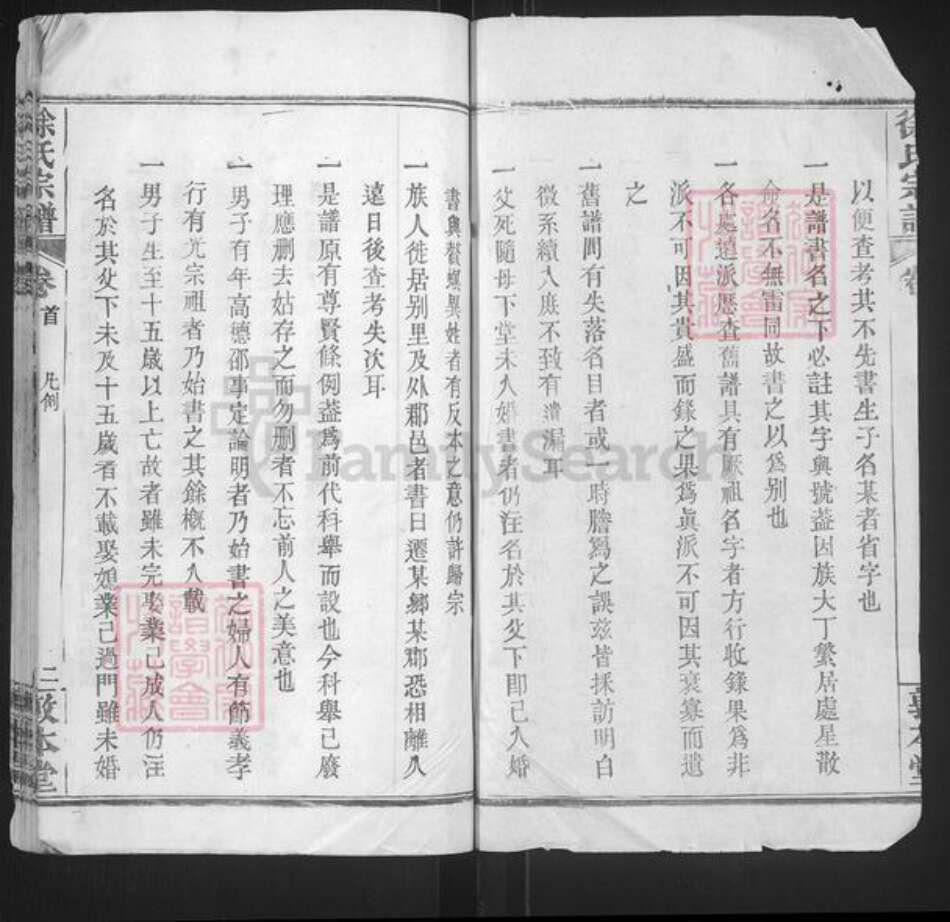 以便查考其不先書生子名某者省字也
一是譜書名之下必註其字與號葢因族大丁繁居處星散
命名不無雷同故書之以爲别也
一各處遠派歷查舊譜具有厥祖名字者方行收錄果爲非
派不可因其貴盛而錄之果爲眞派不可因其衰寡而遺
之
一舊譜間有失落名目者或一時謄寫之誤兹皆採訪明白
微系續入庶不致有漏耳
一父死隨母下堂未入婚書者仍注名於其父下即已入婚
書與贅螟異姓者有反本之意仍許歸宗
一族人徙居别里及外郡邑者書曰遷某鄉某郡恐相離久
遠日後查考失次耳
一是譜原有尊賢條例葢爲前代科舉而設也今科舉已廢
理應删去姑存之而勿删者不忘前人之美意也
一男子有年高德邵事定論明者乃始書之婦人有節義孝
行有光宗祖者乃始書之其餘槪不入載
一男子生至十五歲以上亡故者雖未完娶業已成人仍注
名於其父下未及十五歲者不載娶媳業已過門雖未婚
徐氏宗譜
卷首
凡例
二
敦本堂
徐氏宗譜
卷
本堂
FamilySearch